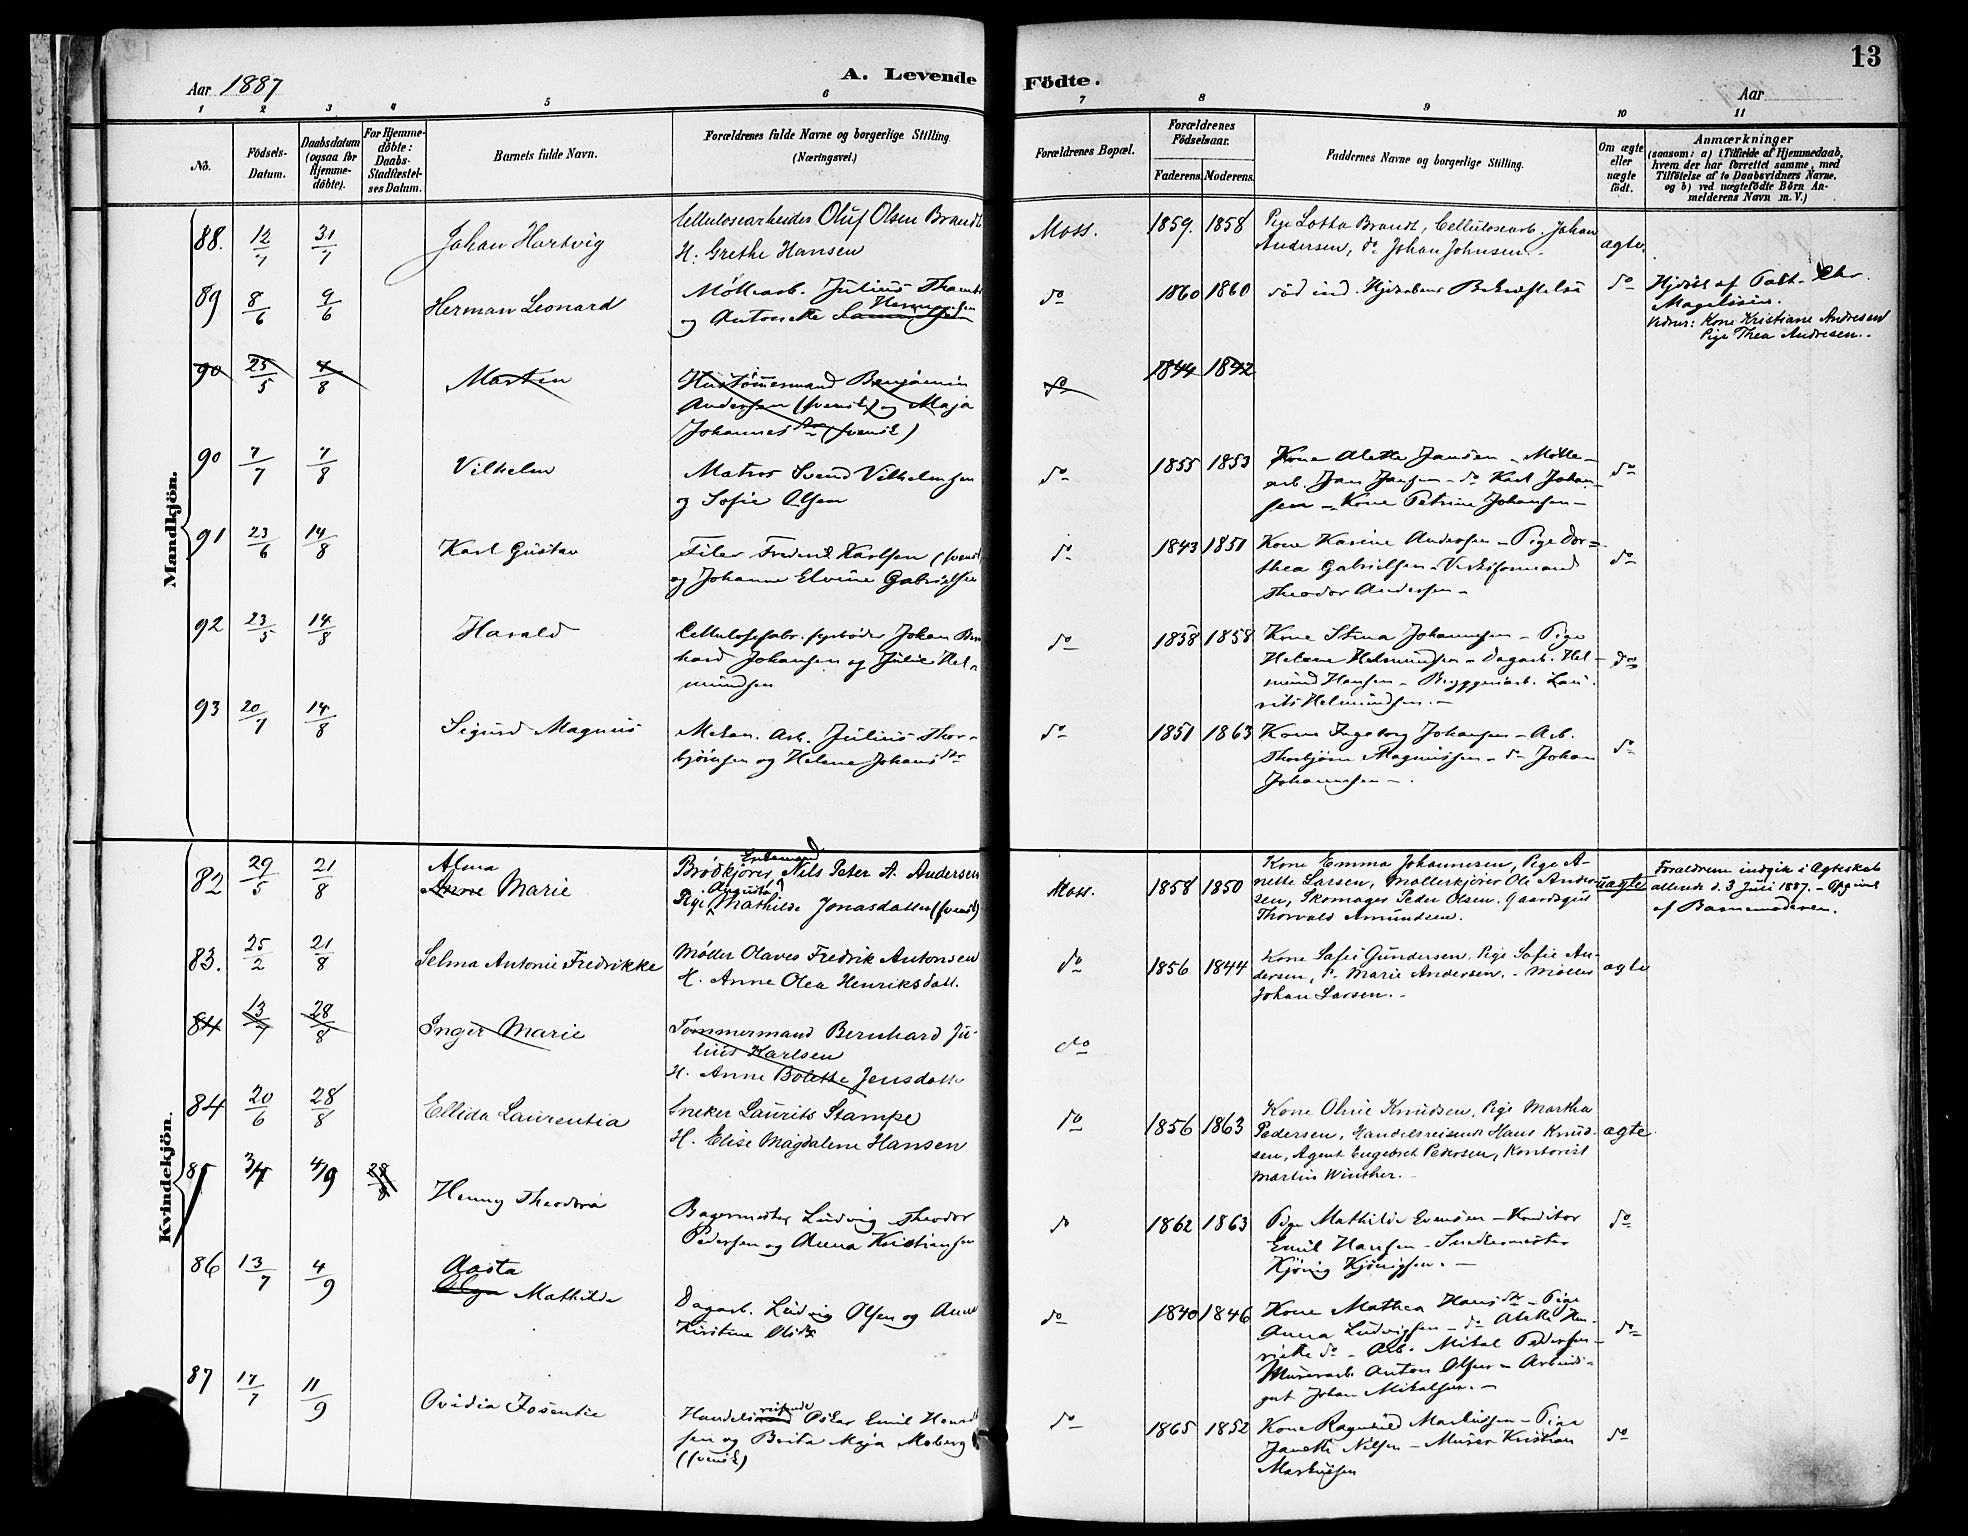 13
A. Levende Födte.
Aar 1887
Aar
1 2 3 4 5 6 7 8 9 10 11
No.
Födsels-Datum.
Daabsdatum (ogsaa for Hjemme-döbte).
For Hjemme-döbte: Daabs-Stadfæstel-ses Datum.
Barnets fulde Navn.
Forældrenes fulde Navne og borgerlige Stilling. (Næringsvei.)
Forældrenes Bopæl.
Forældrenes Födselsaar.
Faderens. Moderens.
Faddernes Navne og borgerlige Stilling.
Om ægte eller uægte födt.
Anmærkninger
(saasom: a) i Tilfælde af Hjemmedaab, hvem der har forrettet samme, med Tilföielse af to Daabsvidners Navne, og b) ved uægtefödte Börn An-melderens Navn m. V.)
Mandkjön.
88. 12/7 31/7 Johan Hartvig
Cellulosearbeider Oluf Olsen Brandt
H. Grethe Hansen
Moss. 1859. 1858
Pige Lotta Brandt, Cellulosearb. Johan
Andersen, do Johan Johnsen.
ægte.
89 8/6 9/6 Herman Leonard
Møllearb. Julius
og Antonette
do 1860 1860 Bekræftelse do
Hjdöbt af
Vidner: Kone Kristiane Andresen
Pige Thea Andresen.
90 25/5 7/8 Marten
Hustømmermand Benjamin
Andersen (svensk) og Maja
Johannesdtr (svensk)
do 1844 1842
90 7/7 7/8 Vilhelm
Matros Svend Vilhelmsen
og Sofie Olsen
do 1855 1853
Kone Alette Jansen - Mølle-
arb. Jan Jansen - do Karl Johan-
sen - Kone Petrine Johansen -
do
91 23/6 14/8 Karl Gustav
Filer Fredrik Karlsen (svensk)
og Johanne Elvine Gabrielsen
do 1843 1851
Kone Karine Andersen - Pige Dor-
thea Gabrielsen - Verksformand
Theodor Andersen -
do
92 23/5 14/8 Harald
Cellulosefabr. fyrbøder Johan Bern
hard Johansen og Julie Hel-
mundsen
do 1858 1858
Kone Stina Johannesen - Pige
Helene Helmundsen - Dagarb. Hel-
mund Hansen - Bryggeriarb. Lau-
rits Helmundsen. -
do
93 20/7 14/8 Sigurd Magnus
Mekan. Arb. Julius Thor-
bjørnsen og Helene Johansdtr
do 1851 1863
Kone Ingeborg Johansen - Arb.
Thorbjørn Magnussen - do Johan
Johannesen -.
do
Kvindekjön.
82 29/5 21/8 Alma
Anne Marie
Enkemand
Brødkjører Nils Peter A. Andersen
Augusta
Pige Mathilde Jonasdatter (svensk)
Moss. 1858 1850
Kone Emma Johannesen, Pige A-
nette Larsen, Møllerkjører Ole Ander-
sen, Skomager Peder Olsen, Gaardsgut
Thorvald Amundsen.
uægte
Forældrene indgik i Ægteskab
allerede d. 3 Juli 1887. - Opgivet
af Barnemoderen.
83. 25/2 21/8 Selma Antonie Fredrikke
Møller Olaves Fredrik Antonsen
H. Anne Olea Henriksdatt.
do 1856 1844
Kone Sofie Gundersen, Pige Sofie An-
dersen, do Marie Andersen. - Møller
Johan Larsen. -
ægte
84 13/7 28/8 Inger Marie
Tømmermand Bernhard Ju-
lius Karlsen
H. Anne Bolette Jensdatte
do
84 20/6 28/8 Ellida Laurentia
Sneker Laurits Stampe
H. Elise Magdalene Hansen
do 1856 1863
Kone Oline Knudsen, Pige Martha
Pedersen, Handelsreisende Hans Knud-
sen, Agent Engebret Pedersen, Kontorist
Martin Winther. -
ægte
85 3/7 4/9 28/8 Henny Theodora
Bagermester Ludvig Theodor
Pedersen og Anna Kristiansen
do 1862 1863
Pige Mathilde Evensen - Konditor
Emil Hansen - Snedkermester
Kjönig Kjönigsen. -
do
86 13/7 4/9 Aasta
Olga Mathilde
Dagarb. Ludvig Olsen og Anne
Kirstine Olsdtr
do 1840 1846
Kone Mathea Hansdtr - Pige
Anna Ludvigsen - do Alette Hen-
riette do - Arb. Mikal Pedersen -
Murerarb. Anton Olsen - Arbeids-
gut Johan Mikalsen. -
do
87 17/7 11/9 Ovidia Josentie
reisende
Handelsmand Oskar Emil Henrik
sen og Brita Maja Moberg
(svensk)
do 1865 1852
Kone Ragnhild Markussen - Pige
Janette Nilsen - Murer Kristian
Markussen
do